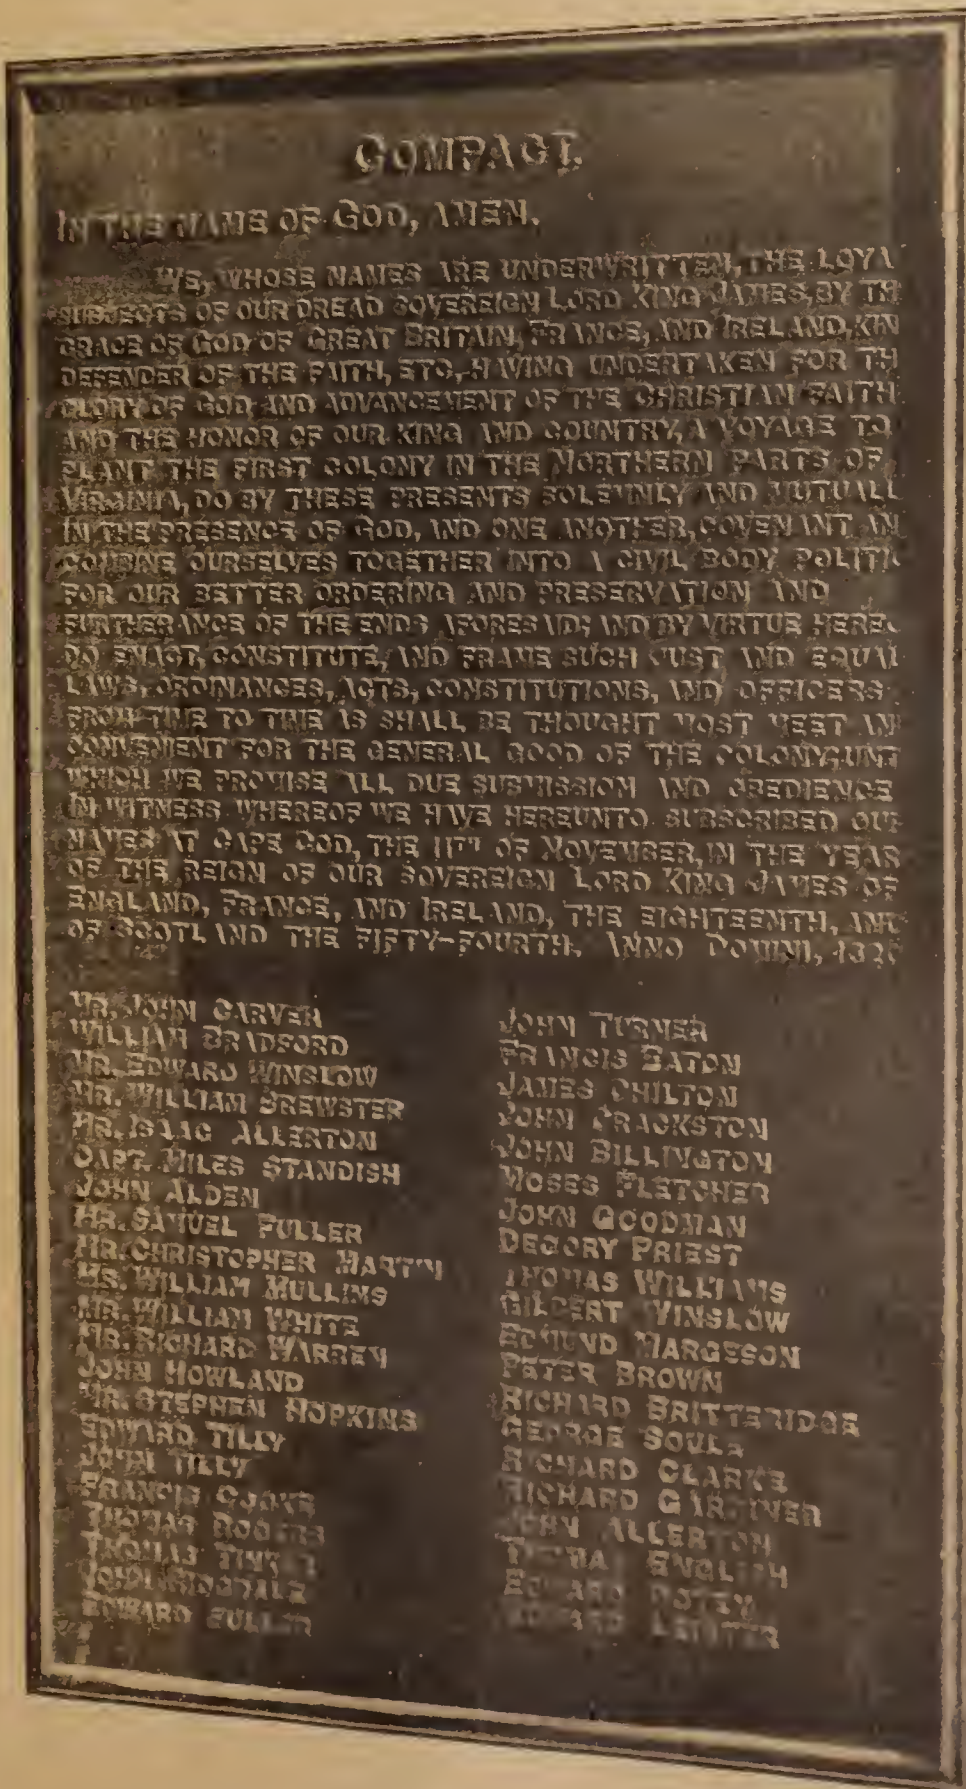 COMPACT.
IN THE NAME OF GOD, AMEN.
WE, WHOSE NAMES ARE UNDERWRITTEN, THE LOYA
SUBJECTS OF OUR DREAD SOVEREIGN LORD KING JAMES, BY TH
GRACE OF GOD OF GREAT BRITAIN, FRANCE, AND IRELAND, KIN
DEFENDER OF THE FAITH, ETC., HAVING UNDERTAKEN FOR TH
GLORY OF GOD, AND ADVANCEMENT OF THE CHRISTIAN FAITH
AND THE HONOR OF OUR KING AND COUNTRY, A VOYAGE TO
PLANT THE FIRST COLONY IN THE NORTHERN PARTS OF
VIRGINIA, DO BY THESE PRESENTS SOLEMNLY AND MUTUALL
IN THE PRESENCE OF GOD, AND ONE ANOTHER, COVENANT AN
COMBINE OURSELVES TOGETHER INTO A CIVIL BODY POLITI
FOR OUR BETTER ORDERING AND PRESERVATION AND
FURTHERANCE OF THE ENDS AFORESAID; AND BY VIRTUE HERE
DO ENACT, CONSTITUTE, AND FRAME SUCH JUST AND EQUAL
LAWS, ORDINANCES, ACTS, CONSTITUTIONS, AND OFFICERS
FROM TIME TO TIME AS SHALL BE THOUGHT MOST MEET AN
CONVENIENT FOR THE GENERAL GOOD OF THE COLONY; UNT
WHICH WE PROMISE ALL DUE SUBMISSION AND OBEDIENCE
IN WITNESS WHEREOF WE HAVE HEREUNTO SUBSCRIBED OUR
NAMES AT CAPE COD, THE 11TH OF NOVEMBER, IN THE YEAR
OF THE REIGN OF OUR SOVEREIGN LORD KING JAMES OF
ENGLAND, FRANCE, AND IRELAND, THE EIGHTEENTH, AND
OF SCOTLAND THE FIFTY-FOURTH. ANNO DOMINI, 1620
MR. JOHN CARVER
WILLIAM BRADFORD
MR. EDWARD WINSLOW
MR. WILLIAM BREWSTER
MR. ISAAC ALLERTON
CAPT. MILES STANDISH
JOHN ALDEN
MR. SAMUEL FULLER
MR. CHRISTOPHER MARTIN
MR. WILLIAM MULLINS
MR. WILLIAM WHITE
MR. RICHARD WARREN
JOHN HOWLAND
MR. STEPHEN HOPKINS
EDWARD TILLY
JOHN TILLY
FRANCIS COOKE
THOMAS ROGERS
THOMAS TINKER
JOHN RIDGDALE
EDWARD FULLER
JOHN TURNER
FRANCIS EATON
JAMES CHILTON
JOHN CRACKSTON
JOHN BILLINGTON
MOSES FLETCHER
JOHN GOODMAN
DEGORY PRIEST
THOMAS WILLIAMS
GILBERT WINSLOW
EDMUND MARGESON
PETER BROWN
RICHARD BRITTERIDGE
GEORGE SOULE
RICHARD CLARKE
RICHARD GARDINER
JOHN ALLERTON
THOMAS ENGLISH
EDWARD DOTEY
EDWARD LEISTER